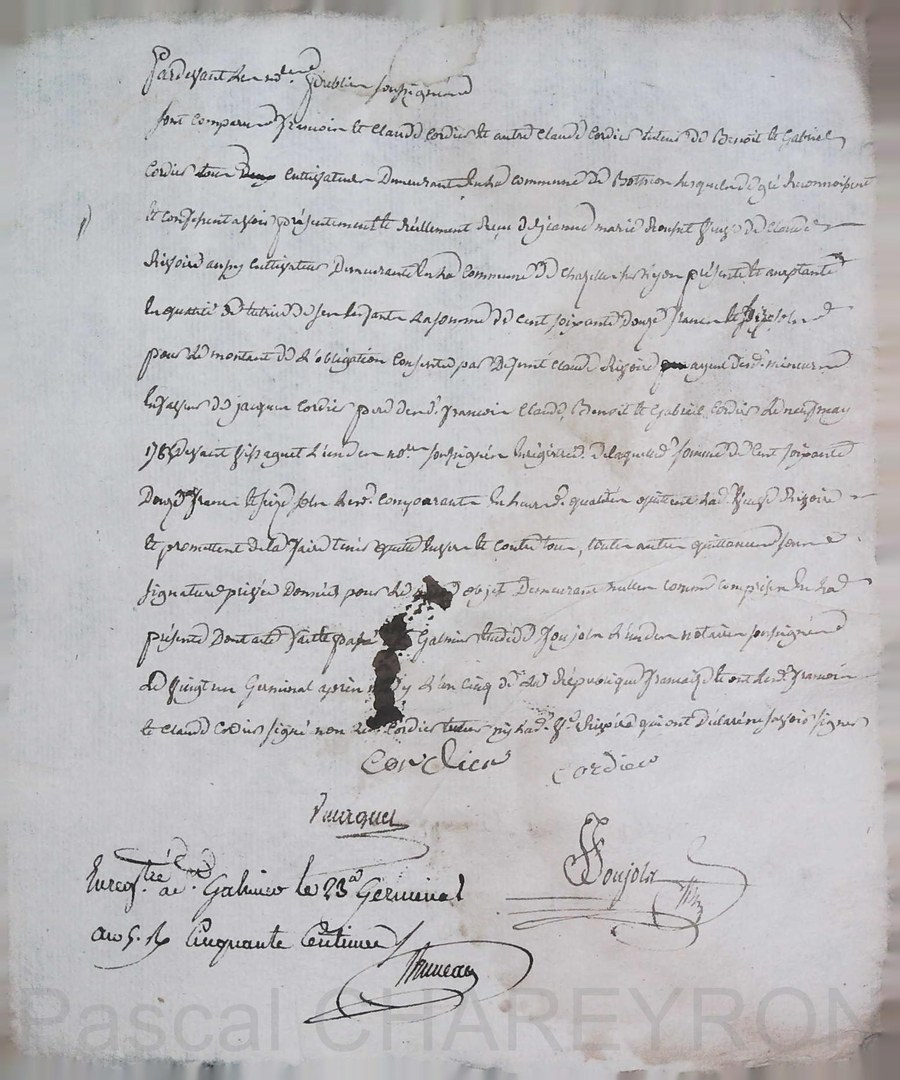 Pardevant les notaires publics soussignés
sont comparus francois et claude cordier et autre claude cordier tuteur de Benoit et Gabriel
cordier tous cultivateurs demeurants en la commune de Boisson lesquels de gré reconnoissent
et confessent avoir présentement et réellement reçu de jeanne marie veuve de claude
Rivoire aussy cultivateur demeurante en la commune de chazelle sur lyon présente et acceptante
en qualité de tutrice de ses enfants la somme de cent soixante douze francs et seize sols
pour le montant de l'obligation consentie par defunt claude Rivoire ayeul desd. mineurs
en faveur de jacques cordier pere desd. francois claude, Benoit et Gabriel cordier le neuf may
178 devant l'un des notes soussignés enregistrée. de laquelle somme de cent soixante
douze francs et seize sols lesd. comparants en leursd. qualités quittent lad. veuve Rivoire
et promettent de la faire tenir quitte envers et contre tous, toutes autres quittances sous
signature privée données pour led objet demeurant nulles comme comprises en la
présente dont acte fait et passé Galmier etude de foujols l'un des notaires soussignés
le vingt un Germinal après midy l'an cinq de la République francaise et ont lesd. francois
et claude cordier signé non led. cordier tuteur ny lad. ve. Rivoire qui ont déclaré ne savoir signer
Cordier cordier
foujols
Enregistré a Galmier le 23 Germinal
an 5. R. Cinquante Centimes
Pascal CHAREYRON